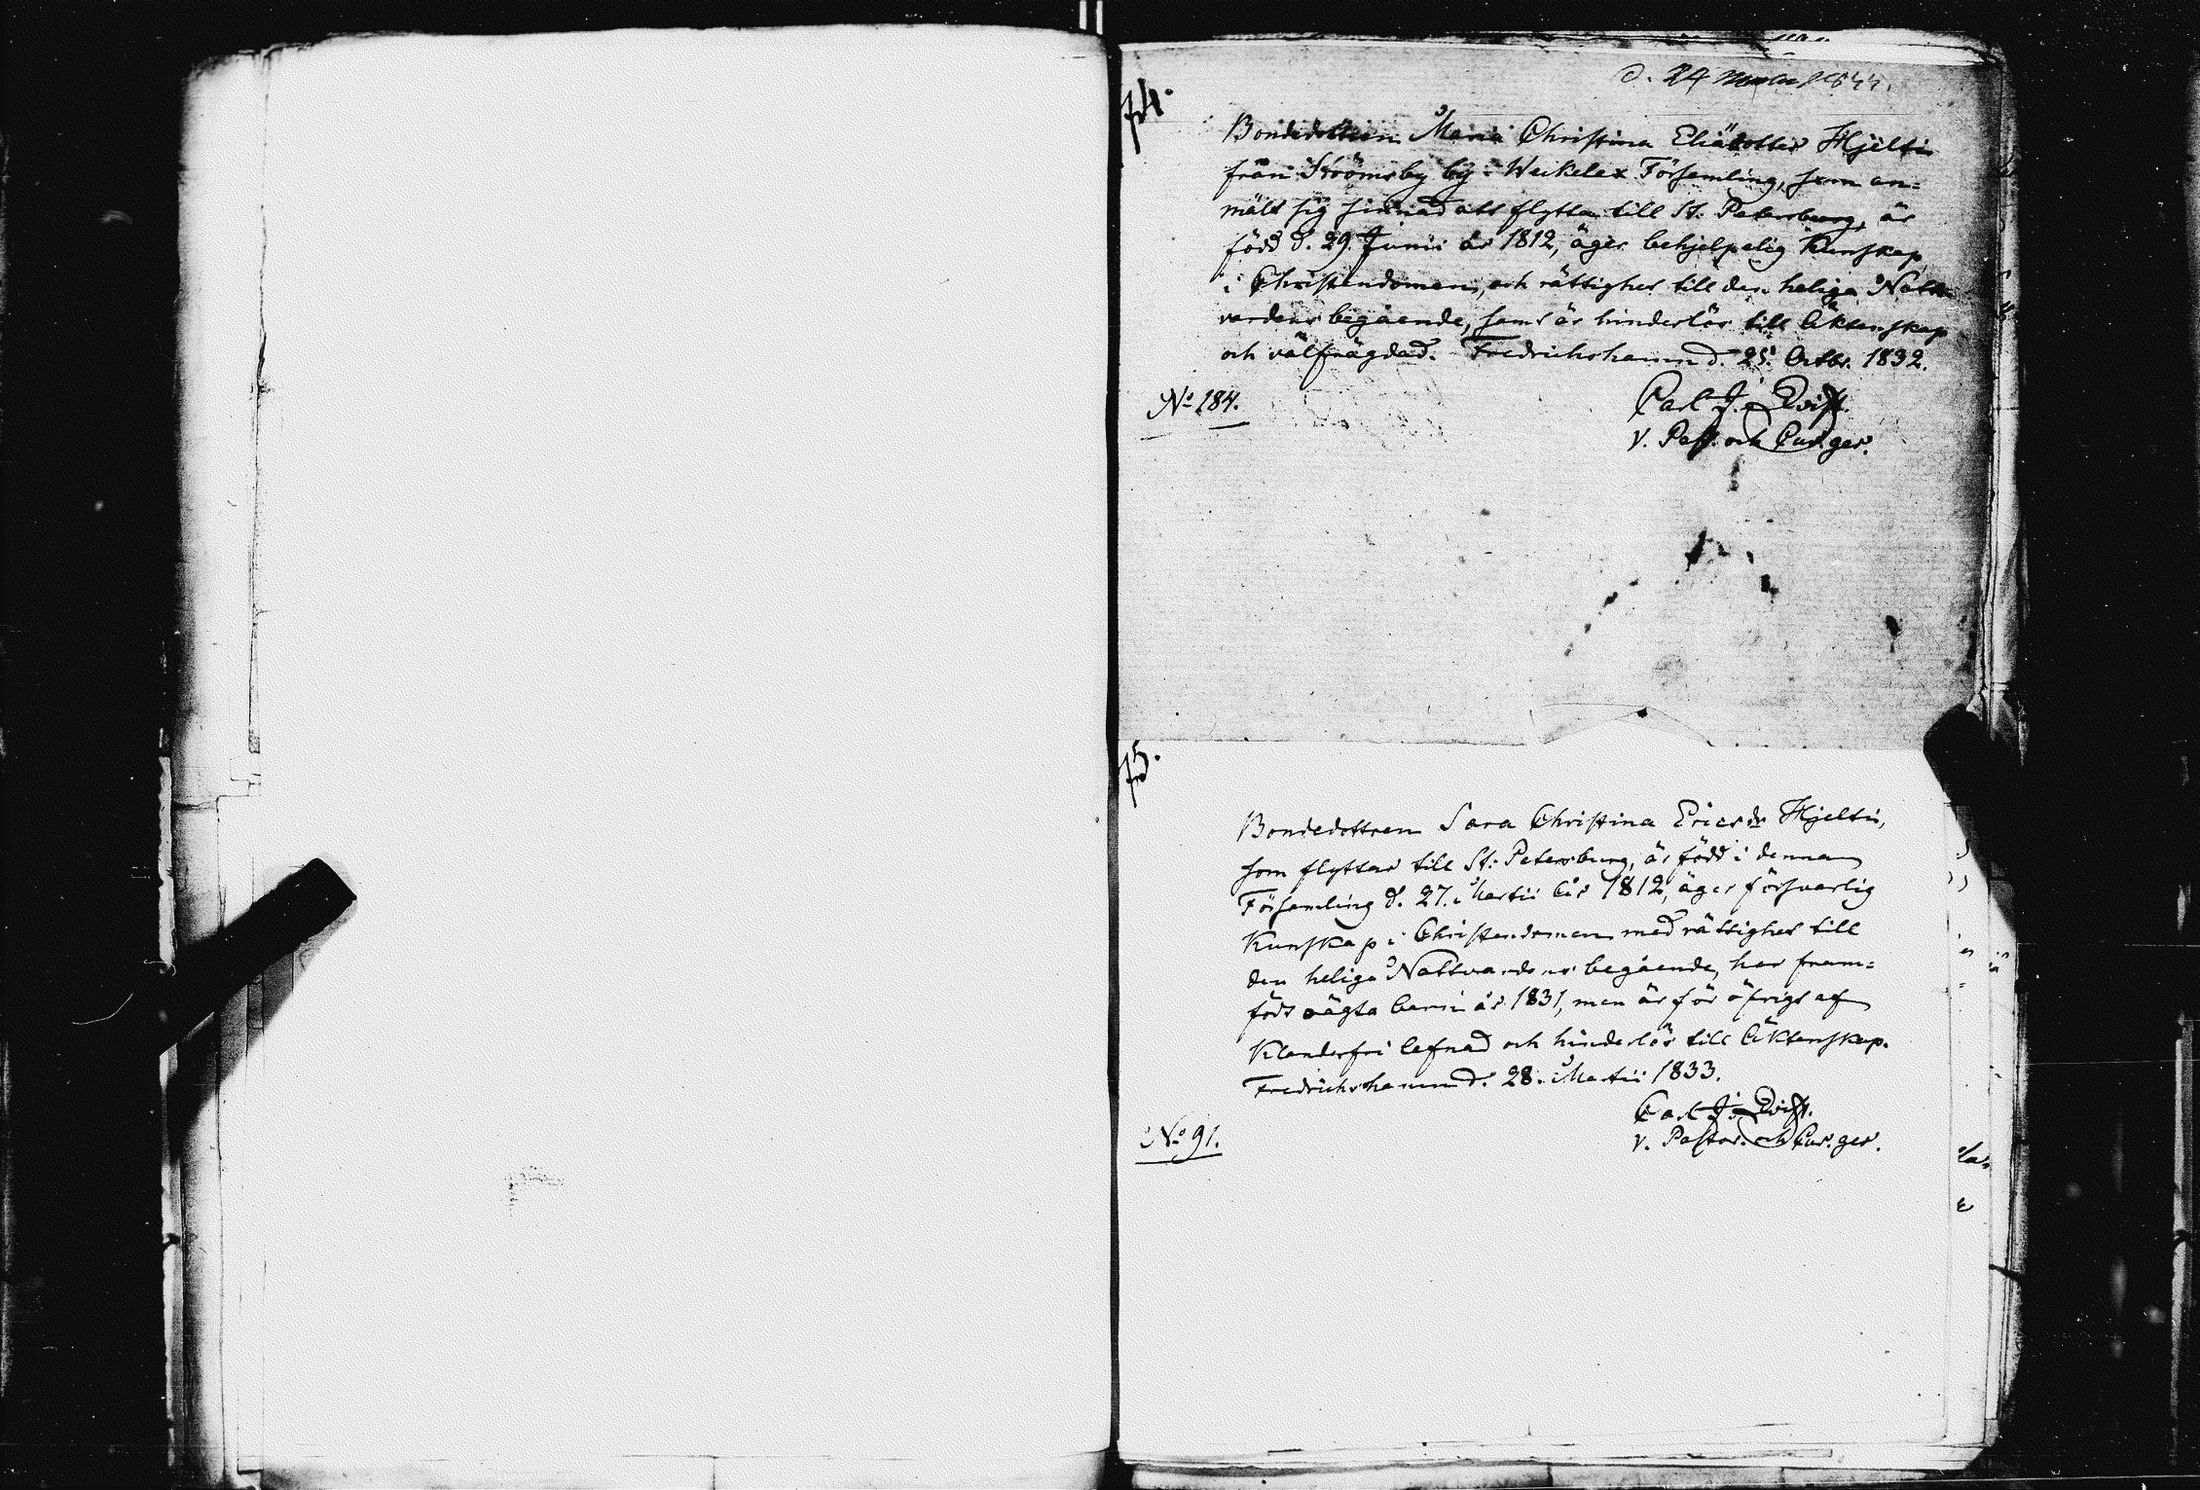 d. 24
74.
Bondedottren Maria Christina Eliädotter Hjelti
från Strömsby by i Weckelax Församling, som an=
mält sig sinnad att flytta till St. Petersburg, är
född d. 29. Junii år 1812, äger behjelpelig Kunskap
i Christendomen, och rättighet till den heliga Natt=
vardens begående, samt är hinderlös till Äktenskap
och välfrägdad. Fredrichshamn d. 25. Octbr. 1832.
No 184.
Carl J. Qvist.
V. Past. och Cur. ger.
75.
Bondedottren Sara Christina Ericsdr Hjelti,
som flyttar till St. Petersburg, är född i denna
Församling d. 27. Martii år 1812, äger försvarlig
Kunskap i Christendomen med rättighet till
den heliga Nattvardens begående, har fram=
födt oägta barn år 1831, men är för öfrigt af
Klanderfri lefnad och hinderlös till Äktenskap.
Fredrichshamn d. 28. Martii 1833.
Carl J. Qvist.
V. Pastor. och Cur. ger.
No 91.